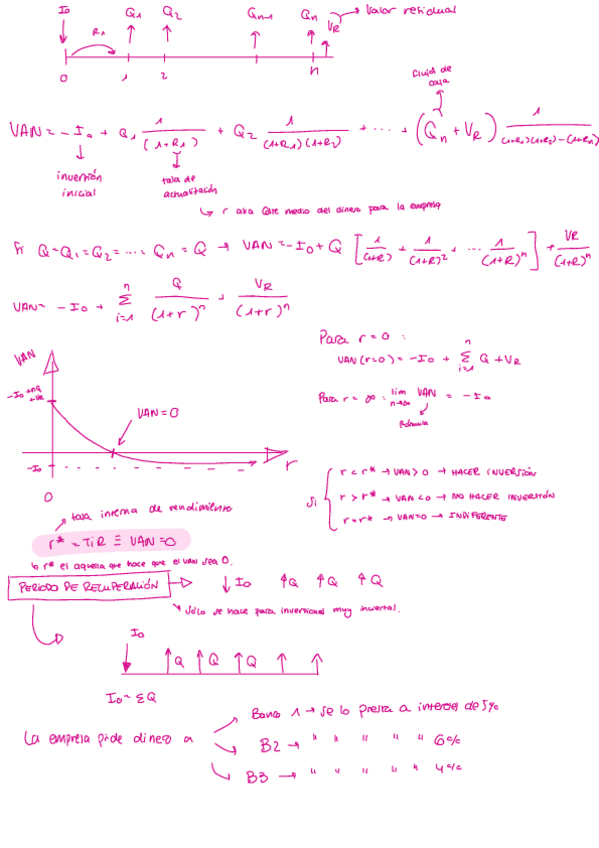 I₀ Q₁ Q₂ Qn-1 Qn → Valor residual
R₁ VR
0 1 2 n
flujo de caja
VAN = -I₀ + Q₁ 1/(1+R₁) + Q₂ 1/((1+R₁)(1+R₂)) + ... + (Qn + VR) 1/((1+R₁)(1+R₂)-(1+Rn))
inversión inicial
tasa de actualización
↳ r aka Coste medio del dinero para la empresa
Si Q=Q₁=Q₂=...=Qn=Q → VAN=-I₀+Q [1/(1+R) + 1/(1+R)² + ... 1/(1+R)ⁿ] + VR/(1+R)ⁿ
VAN= -I₀ + Σ i=1 n Q/(1+r)ⁿ + VR/(1+r)ⁿ
Para r=0 :
VAN(r=0) = -I₀ + Σ i=1 n Q + VR
Para r=∞ : lim n→∞ VAN = -I₀
fórmula
VAN
-I₀+nQ+VR
VAN=0
-I₀
r
0
Si
r < r* → VAN>0 → HACER INVERSIÓN
r > r* → VAN<0 → NO HACER INVERSIÓN
r=r* → VAN=0 → INDIFERENTE
tasa interna de rendimiento
r* = TiR ≡ VAN=0
↳ r* el aquella que hace que el VAN sea 0.
PERIODO DE RECUPERACIÓN → ↓ I₀ ↑Q ↑Q ↑Q
↘ Sólo se hace para inversiones muy inciertas.
I₀
Q Q Q
I₀=ΣQ
La empresa pide dinero a
Banco 1 → se lo presta a interés de 5%
B2 → " " " " " 6%
B3 → " " " " " 4%